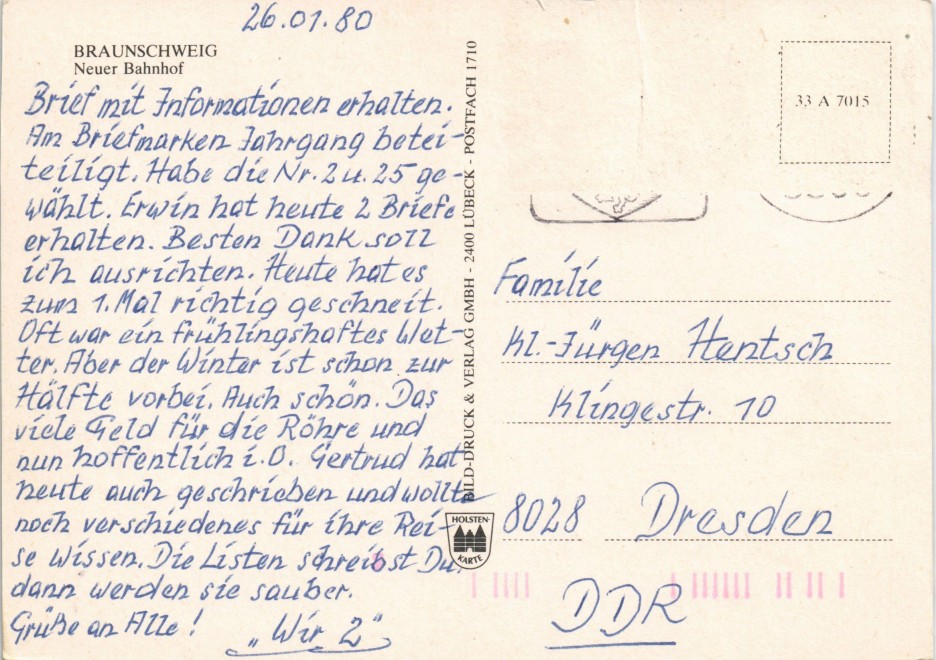 26.01.80
BRAUNSCHWEIG
Neuer Bahnhof
Brief mit Informationen erhalten.
Am Briefmarken Jahrgang betei-
teiligt. Habe die Nr. 2 u. 25 ge-
wählt. Erwin hat heute 2 Briefe
erhalten. Besten Dank soll
ich ausrichten. Heute hat es
zum 1. Mal richtig geschneit.
Oft war ein frühlingshaftes Wet-
ter. Aber der Winter ist schon zur
Hälfte vorbei. Auch schön. Das
viele Geld für die Röhre und
nun hoffentlich i.O. Gertrud hat
heute auch geschrieben und wollte
noch verschiedenes für ihre Rei-
se wissen. Die Listen schreibst Du,
dann werden sie sauber.
Grüße an Alle!
"Wir 2"
BILD-DRUCK & VERLAG GMBH - 2400 LÜBECK - POSTFACH 1710
HOLSTEN-
KARTE
33 A 7015
Familie
Kl.-Jürgen Hentsch
Klingestr. 10
8028 Dresden
DDR